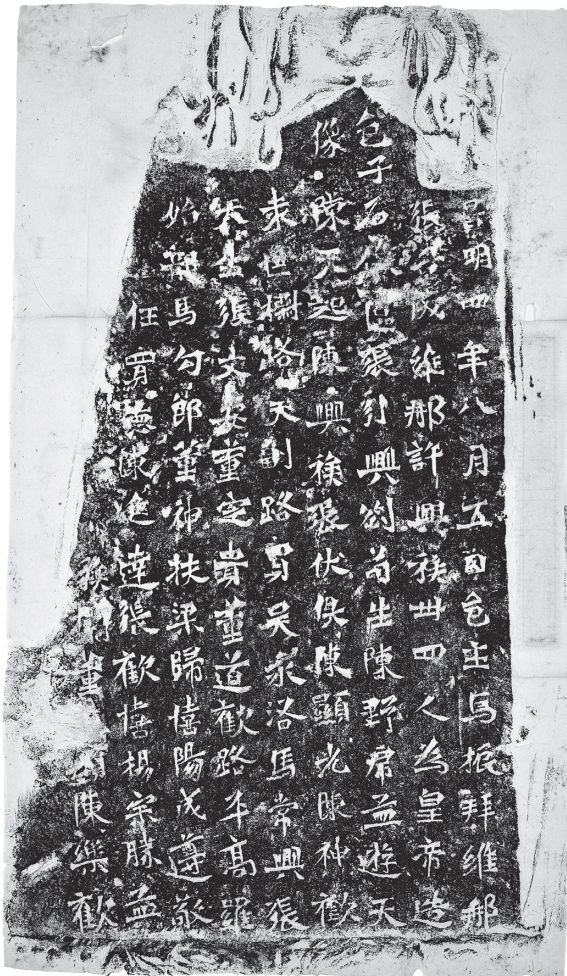 景明四年八月五日邑主馬振拜維那
張子成維那許興族卅四人為皇帝造
邑子石像區張引興劉苟生陳野虎孟遊天
像陳天起陳興族張伏俱陳顯光陳神歡
洛天副路買吳永洛馬常興張
生張文安董定貴董道歡路平高羅
始龍馬勾郎董神扶梁歸憘陽成遵敬
任買德陳進達張歡憘楊宗勝孟
董陳樂歡